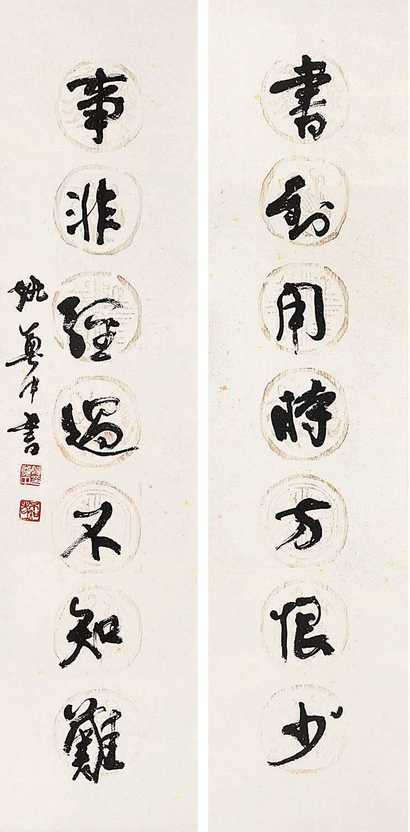 書到用時方恨少
事非經過不知難
姚奠中書